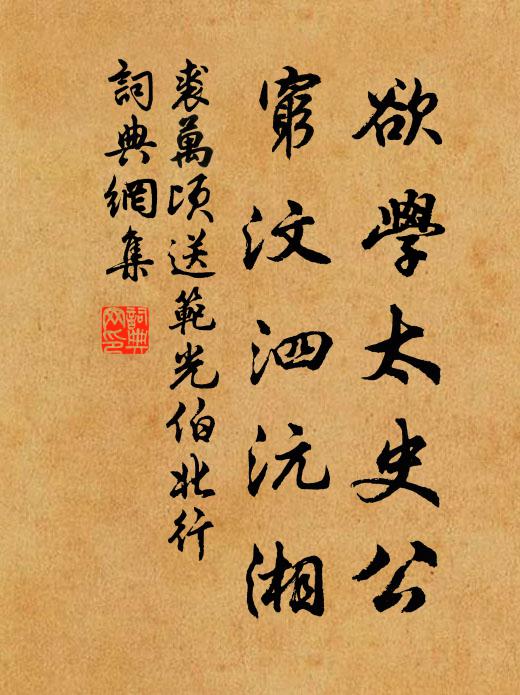 欲學太史公
窮汶泗沅湘
裘萬頃送範光伯北行
詞典網集
詞典网印